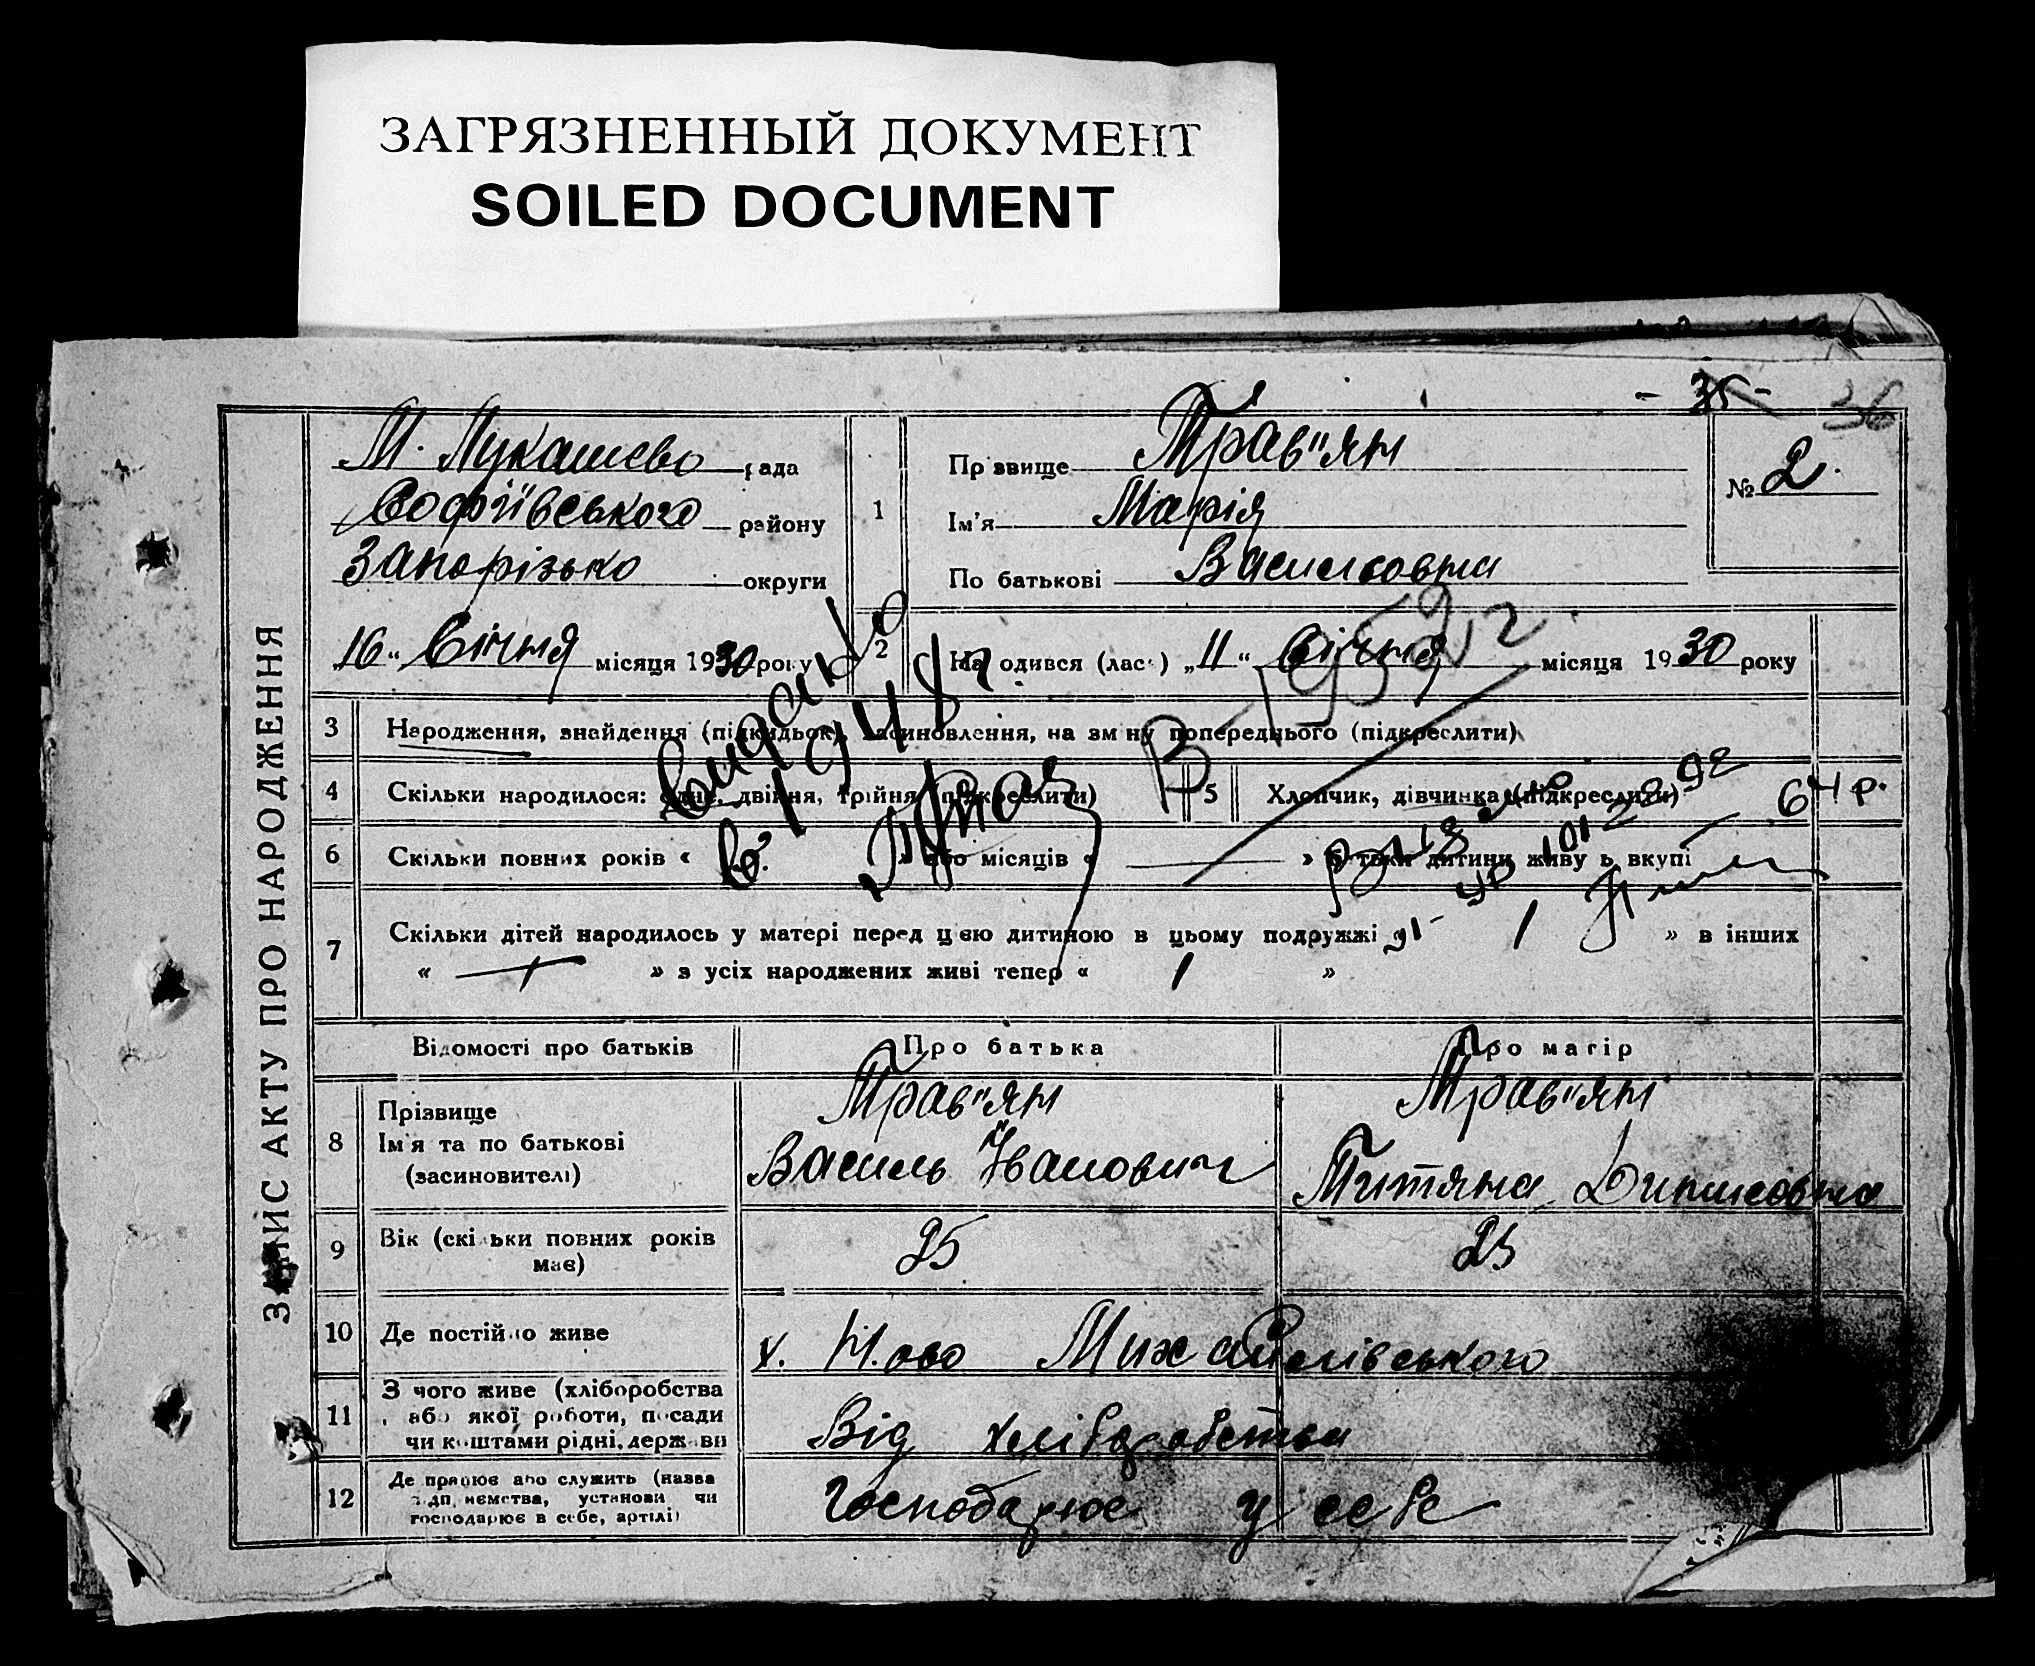 ЗАГРЯЗНЕННЫЙ ДОКУМЕНТ
SOILED DOCUMENT
- 35 - 36
ЗАПИС АКТУ ПРО НАРОДЖЕННЯ
М. Лукашево рада
Софіївського району
Запорізько округи
„16“ Січня місяця 1930 року
1
Прізвище Трав"ян
Ім'я Марія
По батькові Василовна
№ 2.
2 Народився (лась) „11“ Січня місяця 1930 року
3 Народження, знайдення (підкидьок), засиновлення, на зміну попереднього (підкреслити)
4 Скільки народилося: одне, двійня, трійня (підкреслити) 5 Хлопчик, дівчинка (підкреслити)
6 Скільки повних років « » або місяців « — » батьки дитини живуть вкупі
7 Скільки дітей народилось у матері перед цією дитиною в цьому подружжі « 1 » в інших
« — » з усіх народжених живі тепер « 1 »
видано
В 1952
64 р.
Відомості про батьків Про батька Про матір
8 Прізвище
Ім'я та по батькові
(засиновителі)
Трав"ян
Василь Іванович
Трав"ян
Титяна Динисовна
9 Вік (скільки повних років
має)
25 25
10 Де постійно живе х. Н.ово Михайлівського
11 З чого живе (хліборобства
або якої роботи, посади
чи коштами рідні, держави
Від хліборобства
12 Де працює або служить (назва
підприємства, установи чи
господарює в себе, артілі)
Господарює у себе